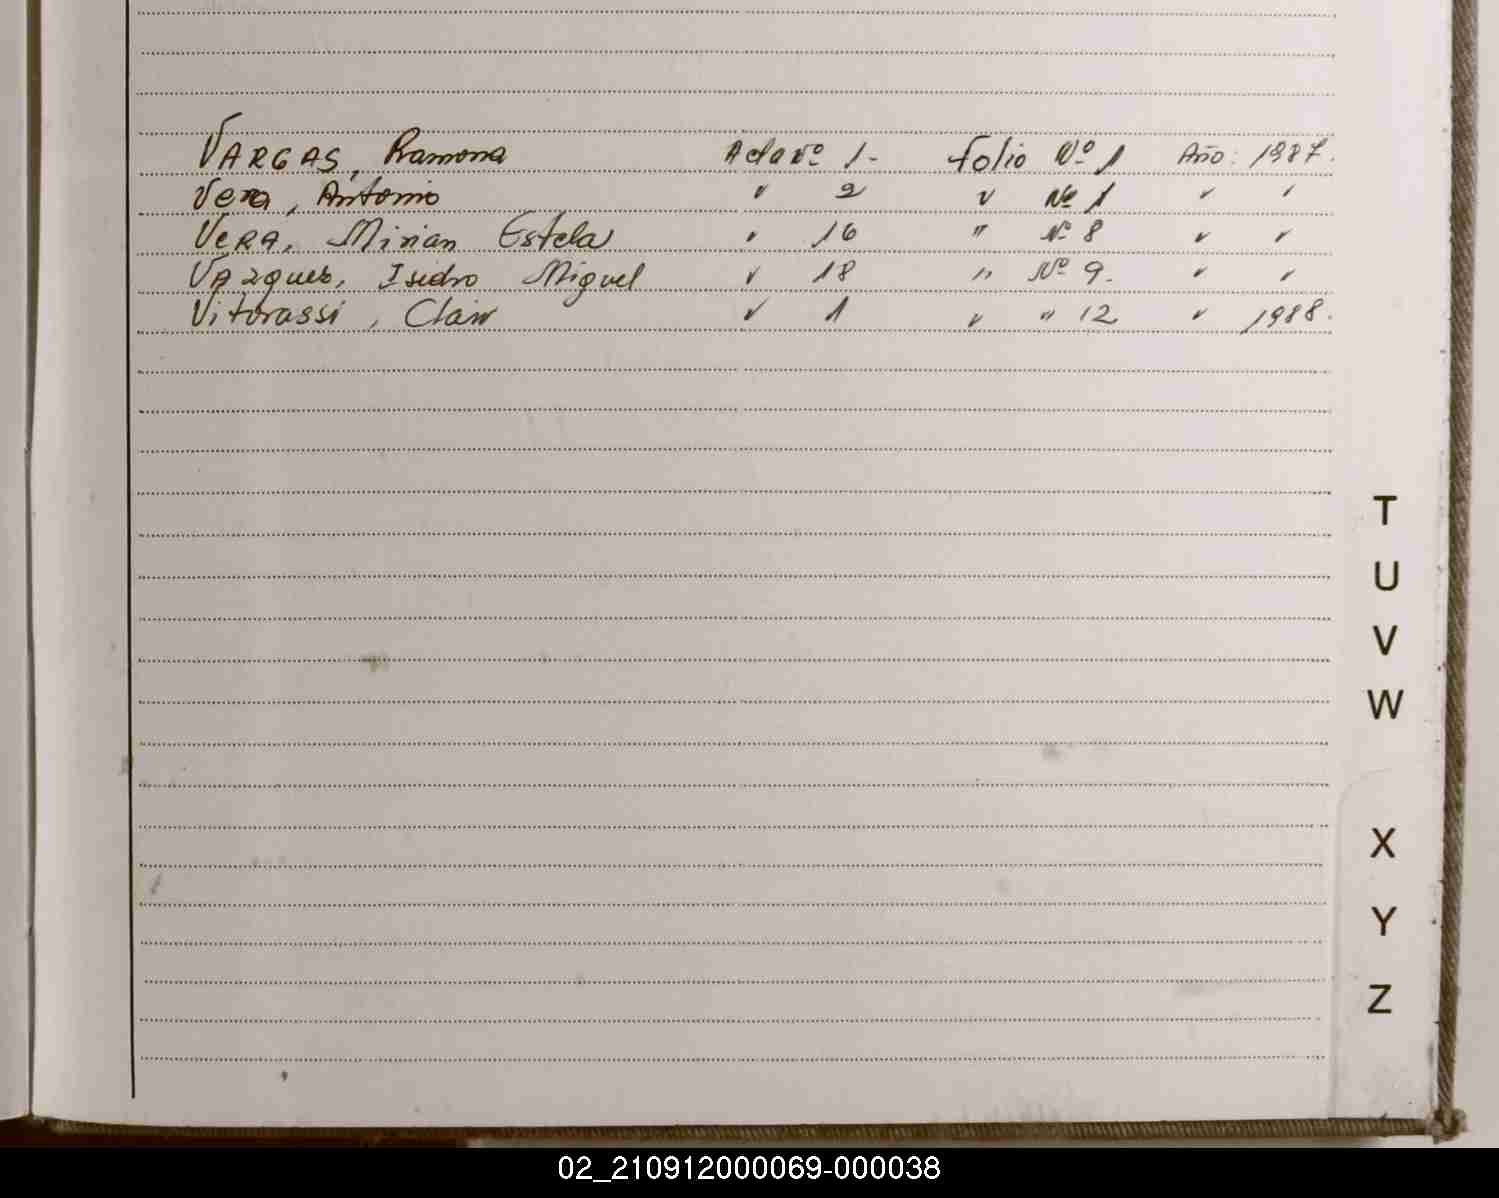 VARGAS, Ramona Acta Nº 1- folio Nº 1 Año: 1987.
Vera, Antonio " 2 " Nº 1 " "
VERA, Mirian Estela " 16 " Nº 8 " "
VAzques, Isidro Miguel " 18 " Nº 9. " "
Vitorassi, Clair " 1 " " 12 " 1988.
T
U
V
W
X
Y
Z
02_210912000069-000038